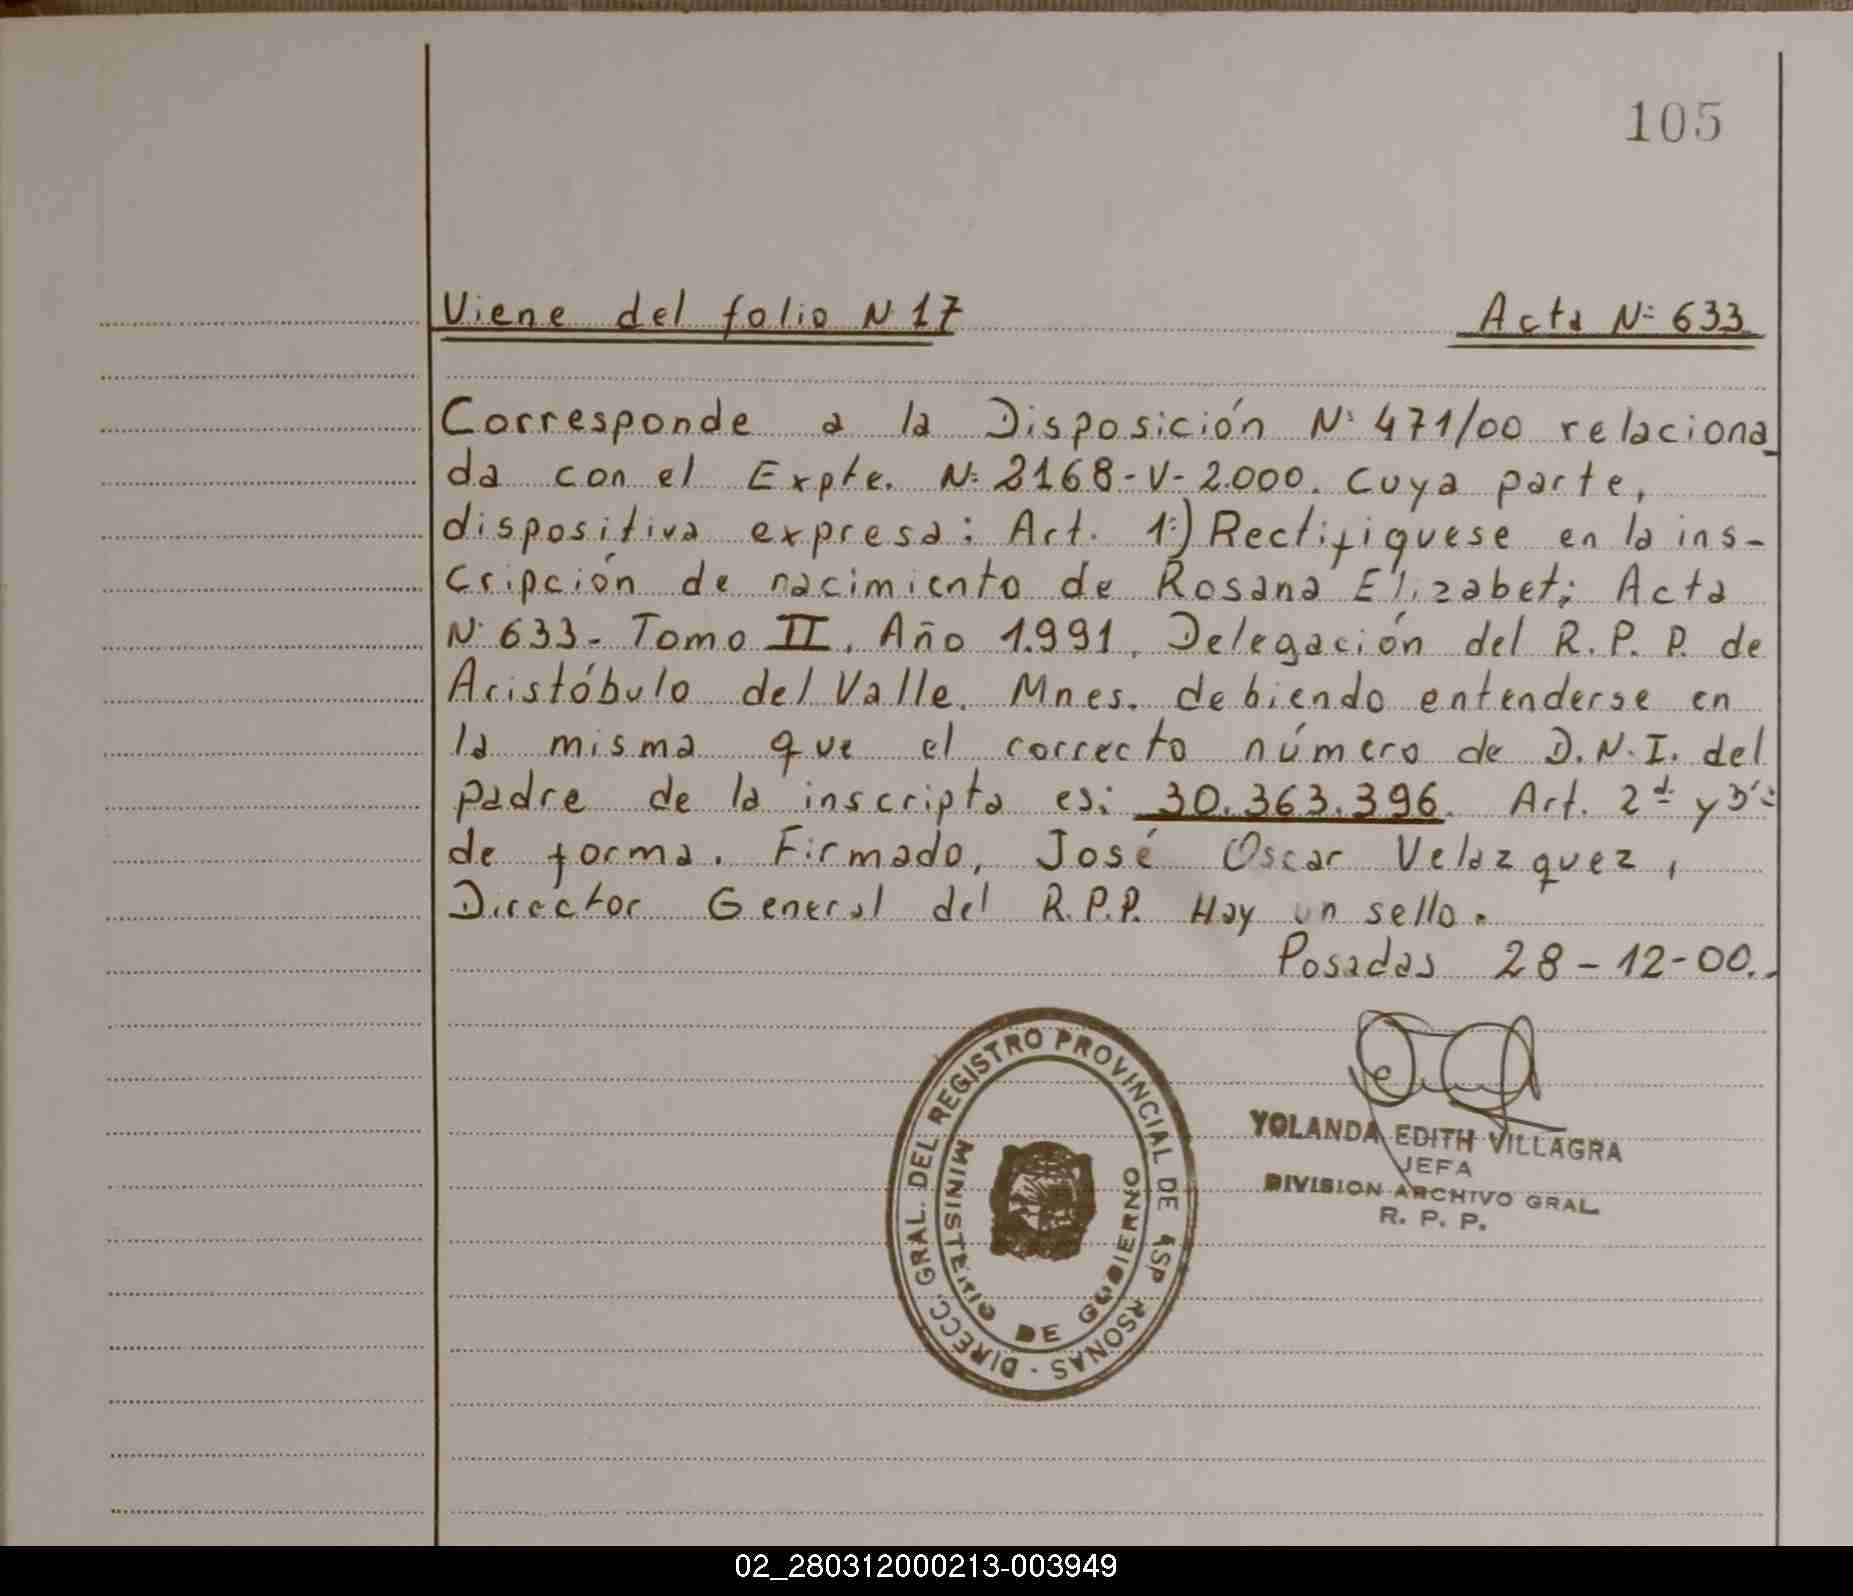 105
Viene del folio N 17 Acta Nº 633
Corresponde a la Disposición Nº 471/00 relaciona
da con el Expte. Nº 2168-V-2.000. Cuya parte,
dispositiva expresa: Art. 1º) Rectifiquese en la ins-
cripción de nacimiento de Rosana Elizabet; Acta
Nº 633- Tomo II. Año 1.991. Delegación del R. P. P. de
Aristóbulo del Valle. Mnes. debiendo entenderse en
la misma que el correcto número de D.N.I. del
padre de la inscripta es: 30.363.396. Art. 2º y 3º
de forma. Firmado, José Oscar Velazquez,
Director General del R.P.P. Hay un sello.
Posadas 28-12-00.
DIRECC. GRAL. DEL REGISTRO PROVINCIAL DE
RSONAS
MINISTERIO DE GOBIERNO
YOLANDA EDITH VILLAGRA
JEFA
DIVISION ARCHIVO GRAL.
R. P. P.
02_280312000213-003949